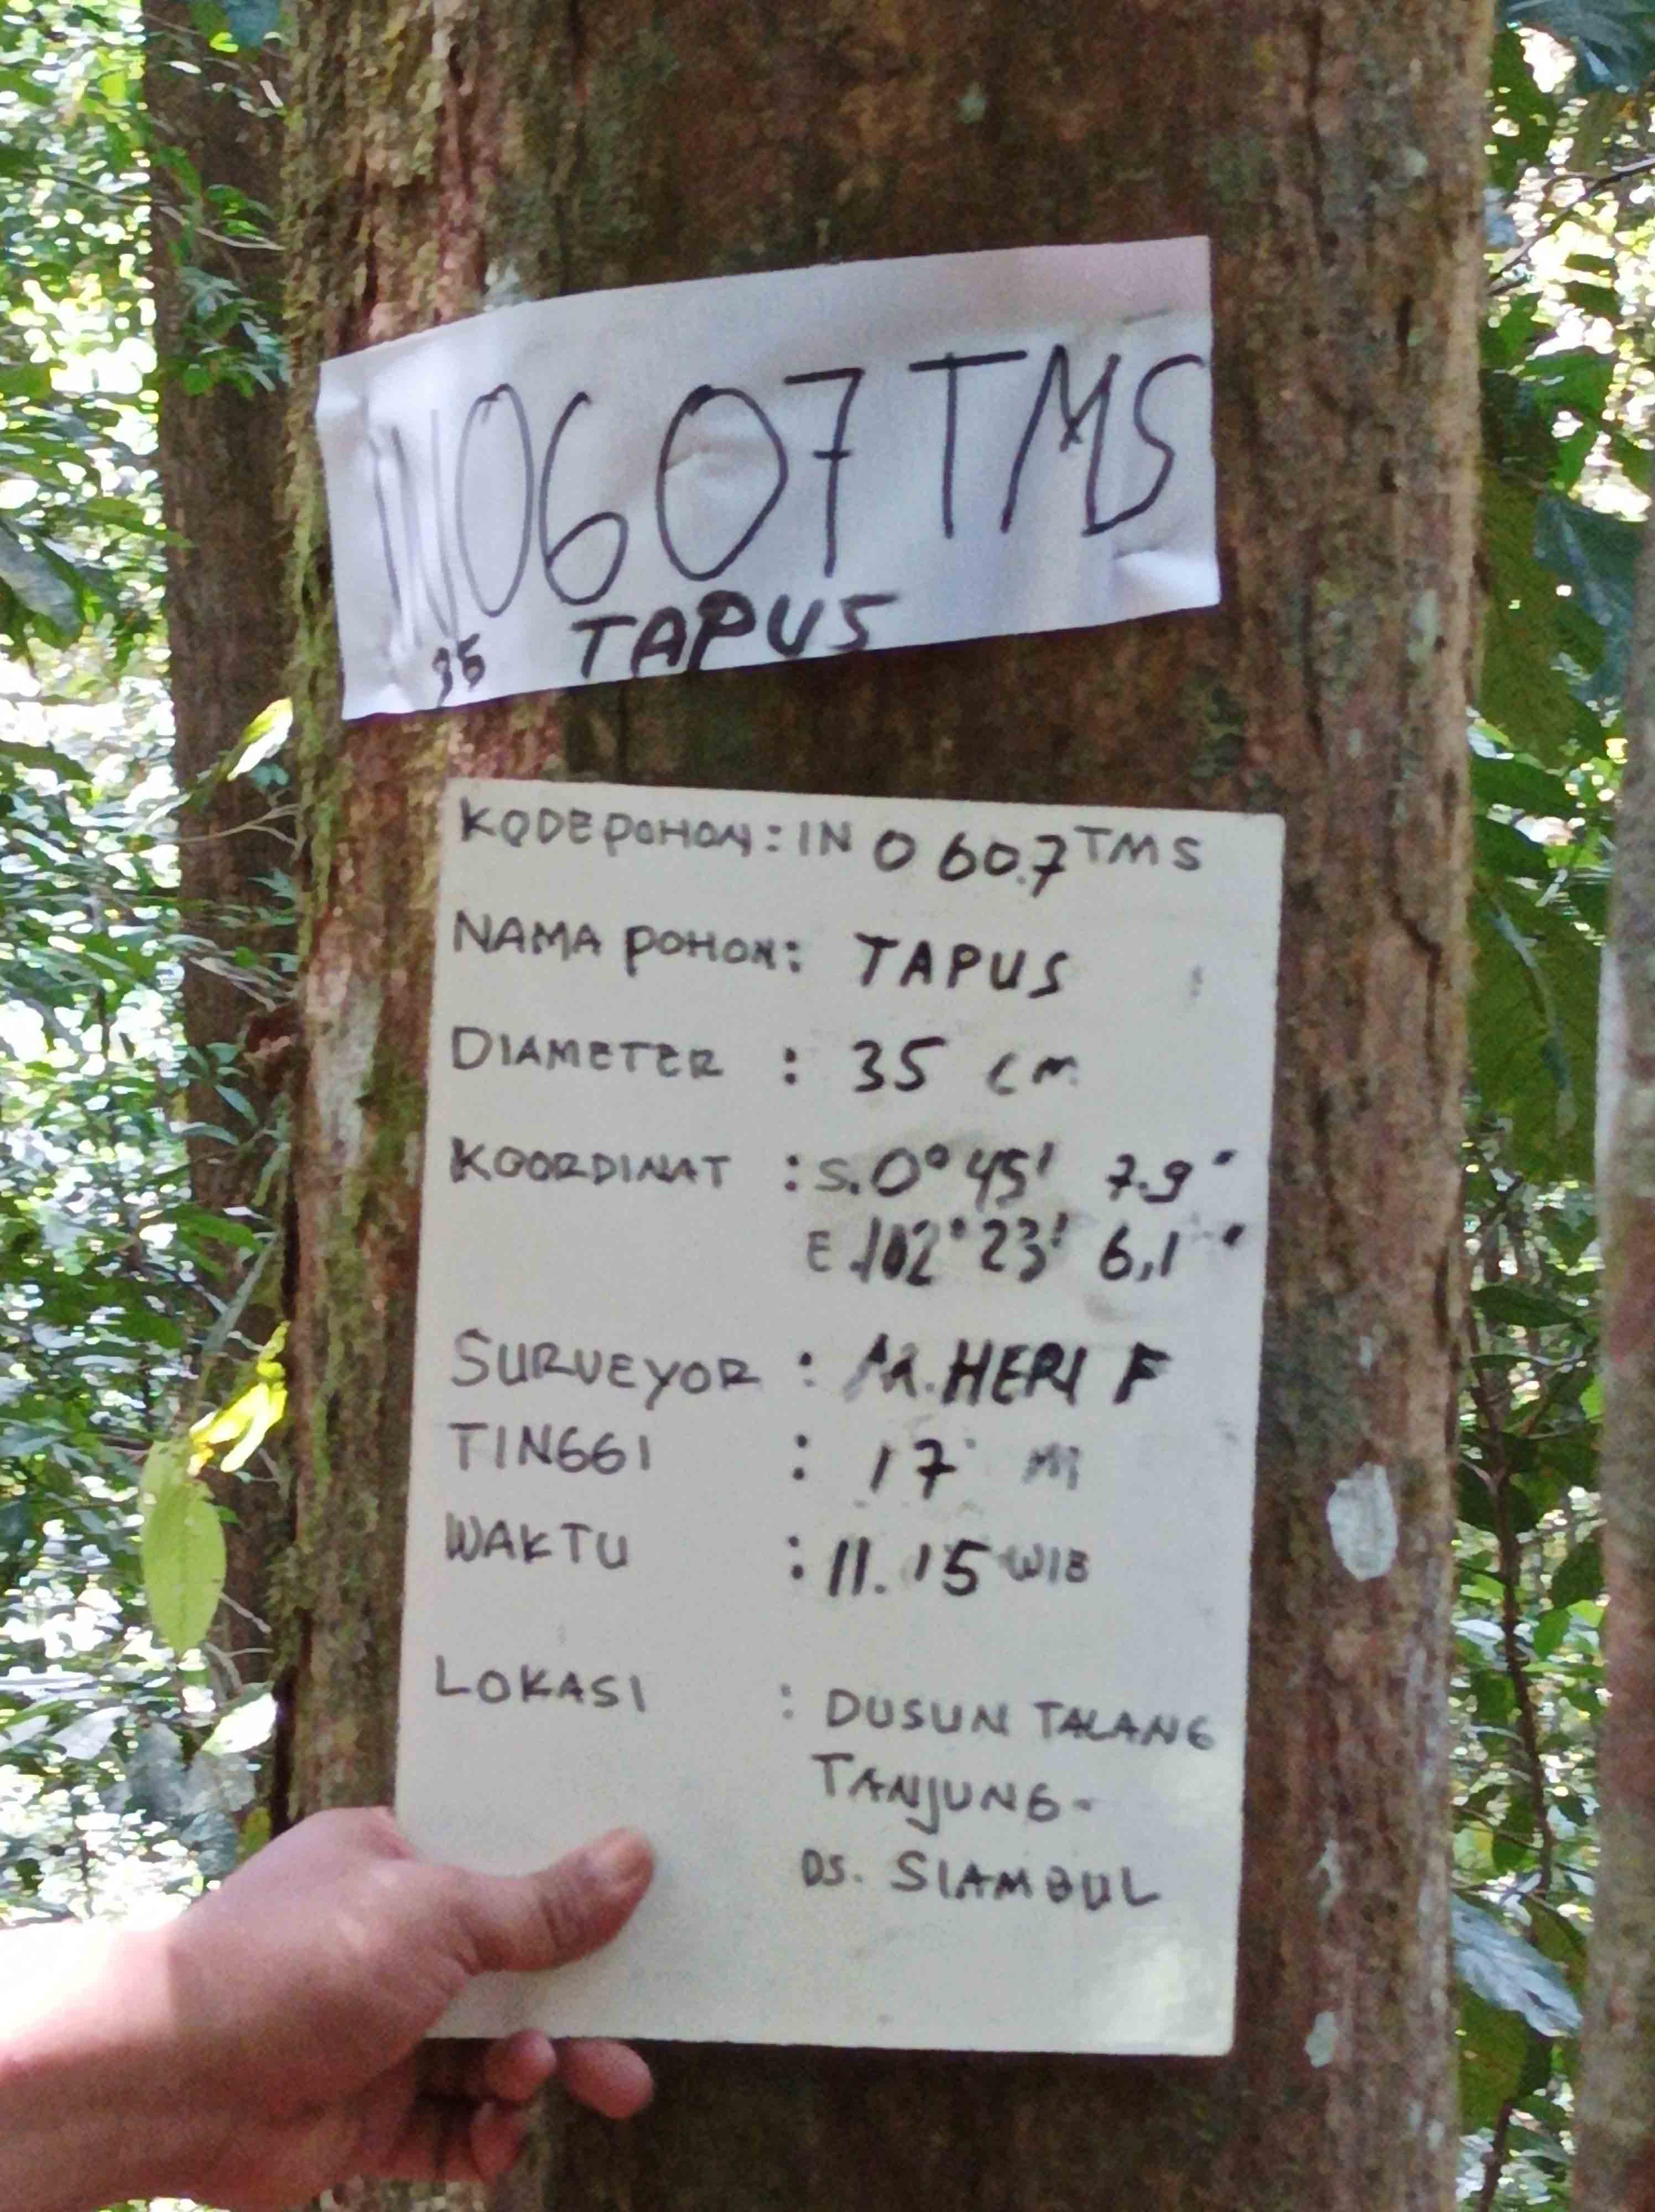 IN0607TMS
35 TAPUS
KODE POHON : IN 0 60.7 TMS
NAMA POHON : TAPUS
DIAMETER : 35 cm
KOORDINAT : S. 0° 45' 7.9"
E. 102° 23' 6,1"
SURVEYOR : M. HERI F
TINGGI : 17 m
WAKTU : 11.15 WIB
LOKASI : DUSUN TALANG
TANJUNG-
DS. SIAMBUL